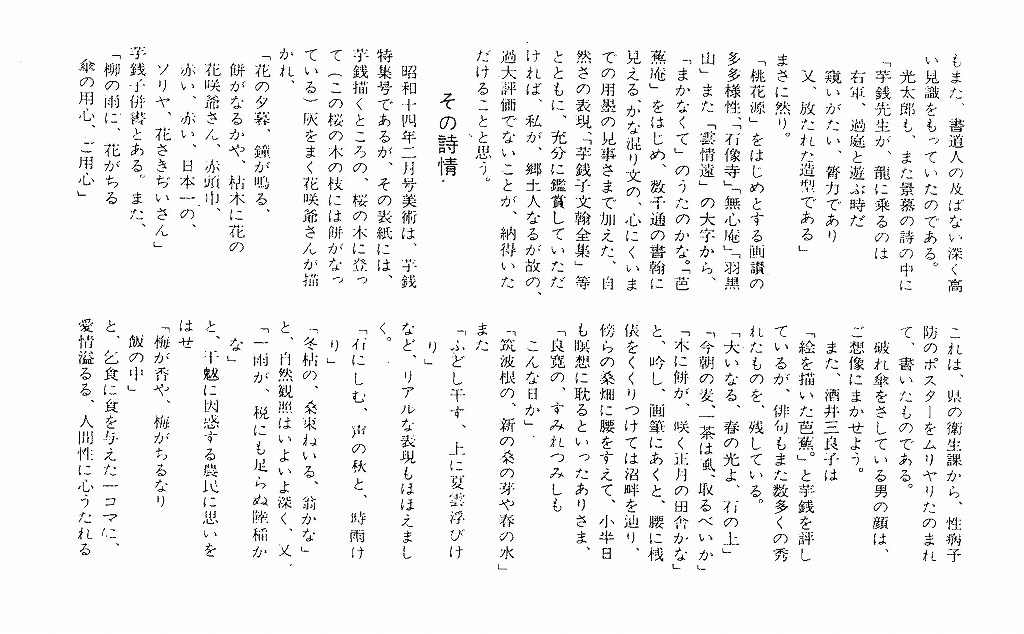 もまた、書道人の及ばない深く高
い見識をもっていたのである。
光太郎も、また景慕の詩の中に
「芋銭先生が、龍に乗るのは
右軍、過庭と遊ぶ時だ
窺いがたい、膂力であり
又、放たれた造型である」
まさに然り。
「桃花源」をはじめとする画讃の
多多様性、「石像寺」「無心庵」「羽黒
山」また「雲情遠」の大字から、
「まかなくて」のうたのかな。「芭
蕉庵」をはじめ、数千通の書翰に
見える、かな混り文の、心にくいま
での用墨の見事さまで加えた、自
然さの表現、「芋銭子文翰全集」等
とともに、充分に鑑賞していただ
ければ、私が、郷土人なるが故の、
過大評価でないことが、納得いた
だけることと思う。
その詩情
昭和十四年二月号美術は、芋銭
特集号であるが、その表紙には、
芋銭描くところの、桜の木に登っ
て（この桜の木の枝には餅がなっ
ている）灰をまく花咲爺さんが描
かれ、
「花の夕暮、鐘が鳴る、
餅がなるかや、枯木に花の
花咲爺さん、赤頭巾、
赤い、赤い、日本一の、
ソリヤ、花さきぢいさん」
芋銭子併書とある。また、
「柳の雨に、花がちる
傘の用心、ご用心」
これは、県の衛生課から、性病予
防のポスターをムリヤリたのまれ
て、書いたものである。
破れ傘をさしている男の顔は、
ご想像にまかせよう。
また、酒井三良子は
「絵を描いた芭蕉。」と芋銭を評し
ているが、俳句もまた数多くの秀
れたものを、残している。
「大いなる、春の光よ、石の上」
「今朝の麦、一茶は虱、取るべいか」
「木に餅が、咲く正月の田舎かな」
と、吟し、画筆にあくと、腰に桟
俵をくくりつけては沼畔を辿り、
傍らの桑畑に腰をすえて、小半日
も瞑想に耽るといったありさま、
「良寛の、すみれつみしも
こんな日か」
「筑波根の、新の桑の芽や春の水」
また
「ふどし干す、上に夏雲浮びけ
り」
など、リアルな表現もほほえまし
く。
「石にしむ、声の秋と、時雨け
り」
「冬枯の、桑束ねいる、翁かな」
と、自然観照はいよいよ深く、又、
「一雨が、税にも足らぬ陸稲か
な」
と、干魃に因惑する農民に思いを
はせ
「梅が香や、梅がちるなり
飯の中」
と、乞食に食を与えた一コマに、
愛情溢るる、人間性に心うたれる